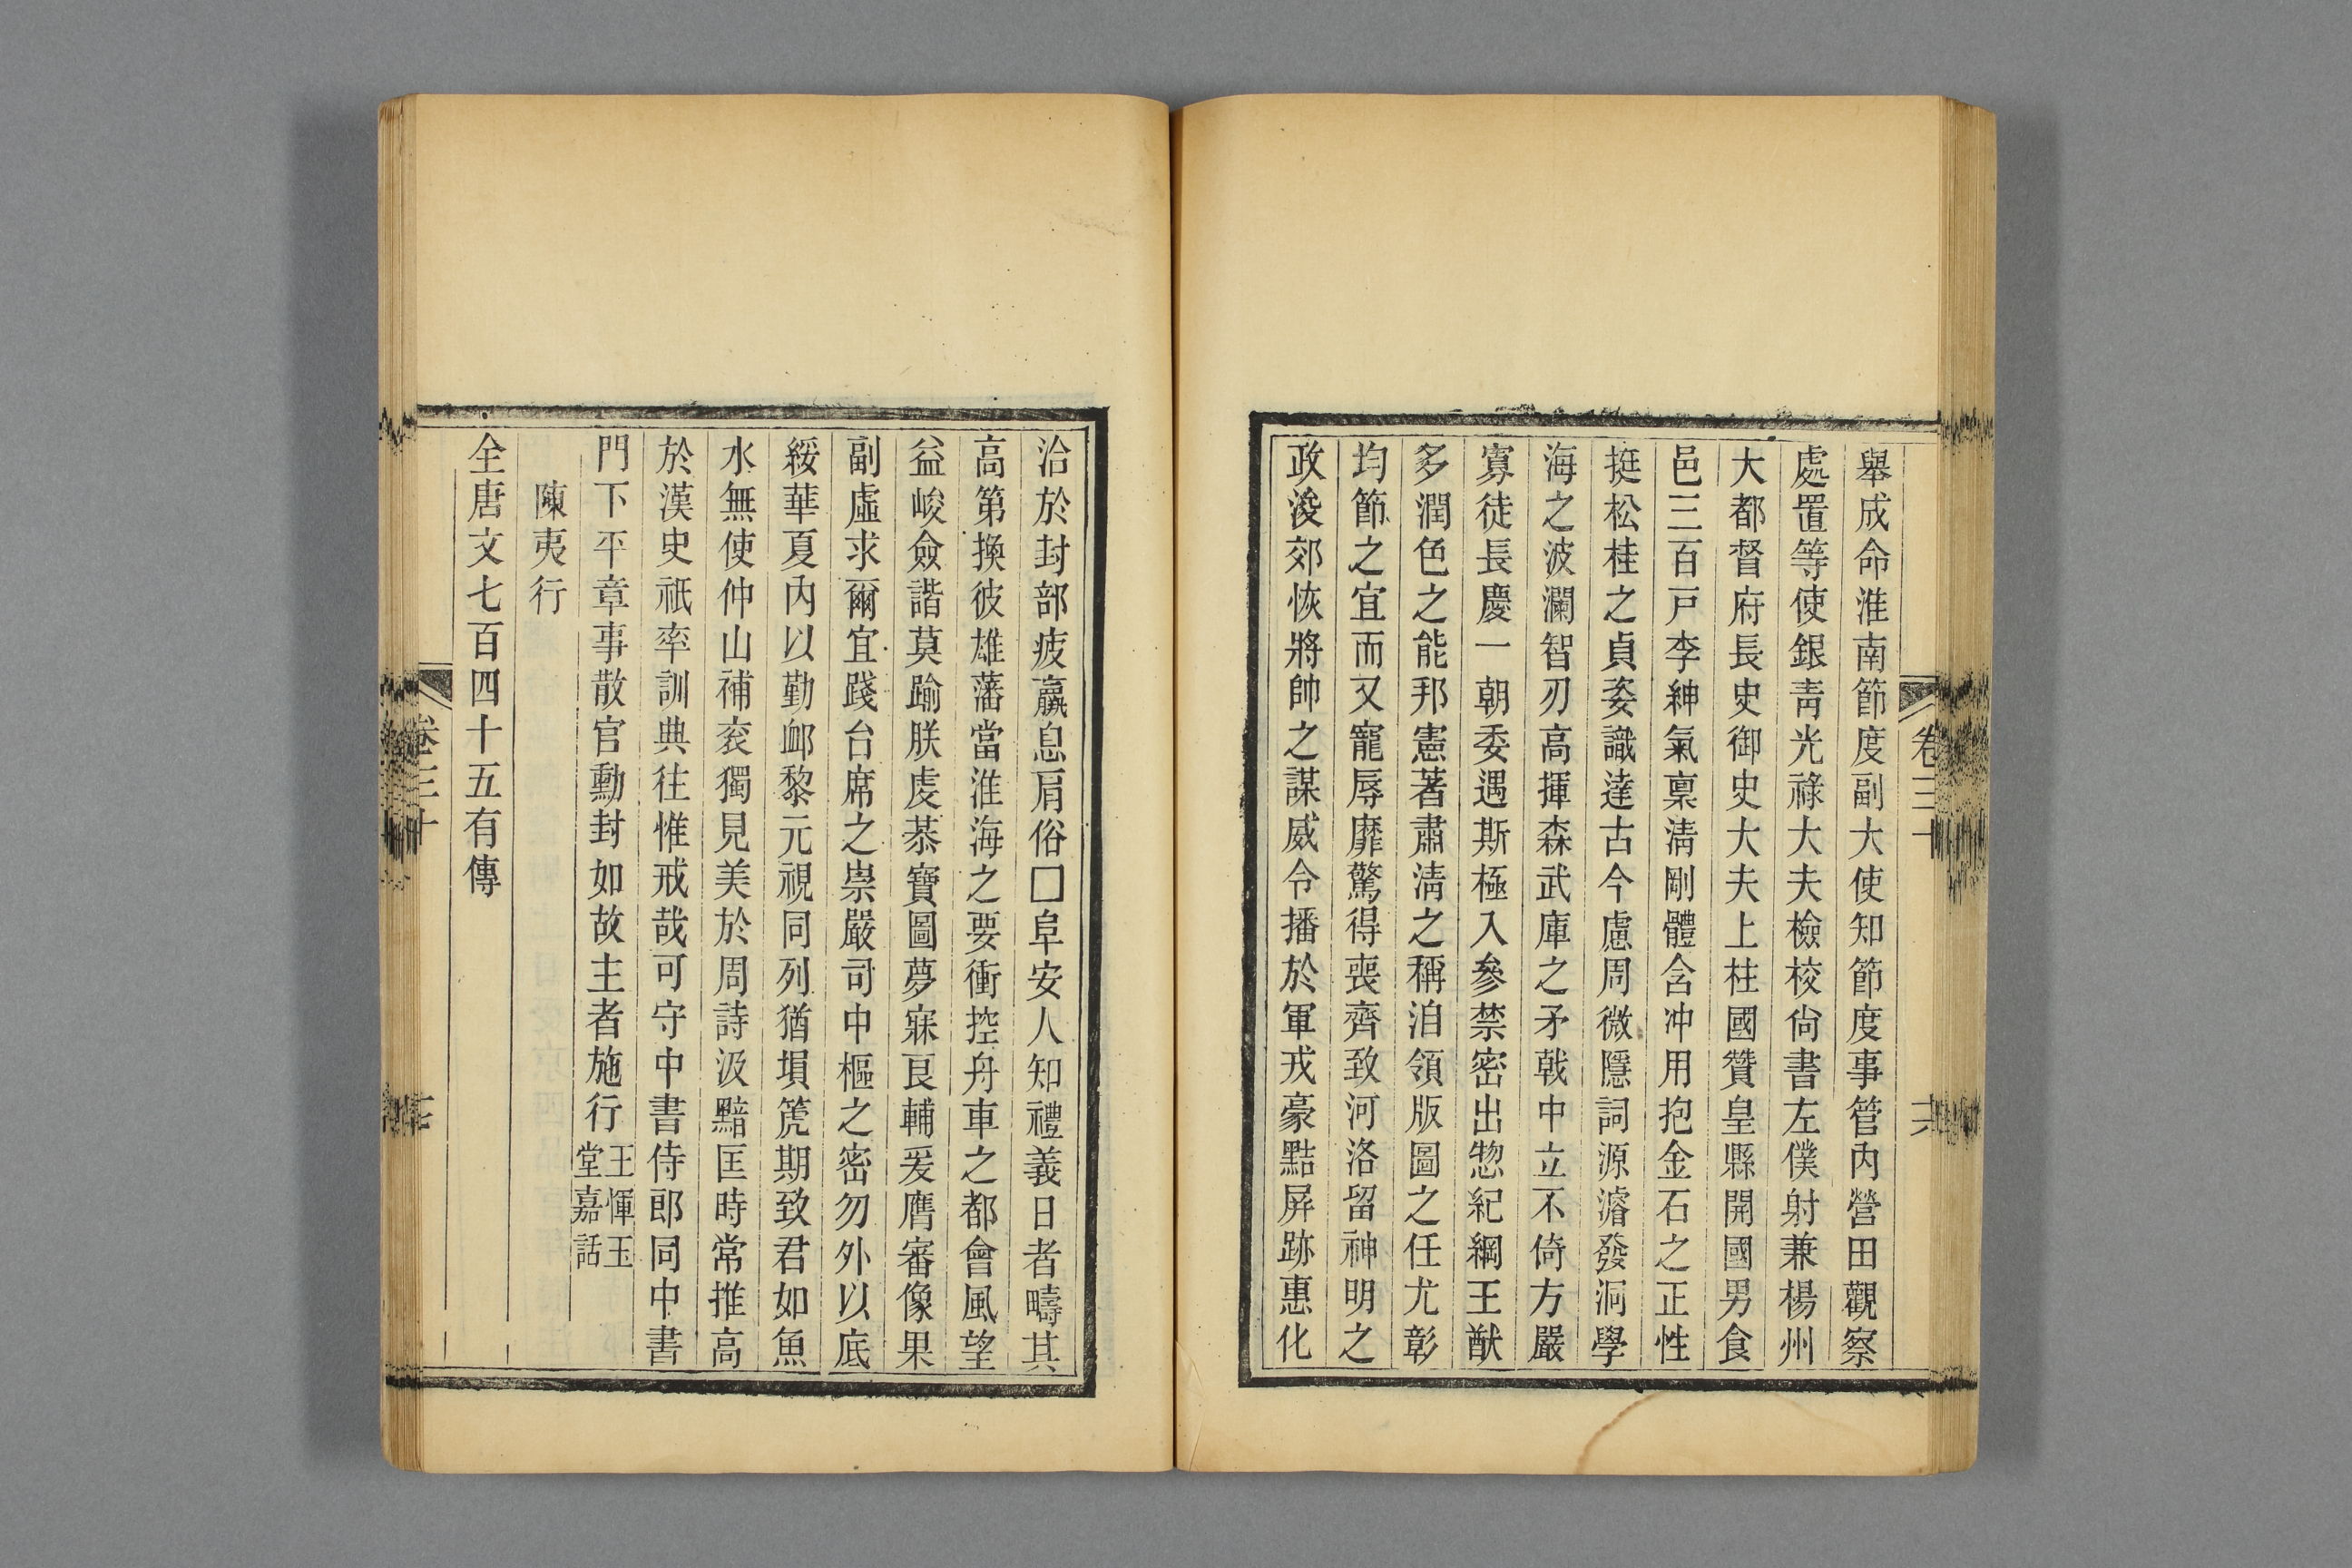 舉成命淮南節度副大使知節度事管內營田觀察
處置等使銀靑光祿大夫檢校尙書左僕射兼楊州
大都督府長史御史大夫上柱國贊皇縣開國男食
邑三百戸李紳氣禀淸剛體含冲用抱金石之正性
挺松桂之貞姿識達古今慮周微隱詞源濬發洞學
海之波瀾智刃高揮森武庫之矛戟中立不倚方嚴
寡徒長慶一朝委遇斯極入參禁密出惣紀綱王猷
多潤色之能邦憲著肅淸之稱洎領版圖之任尤彰
均節之宜而又寵辱靡驚得喪齊致河洛留神明之
政浚郊恢將帥之謀威令播於軍戎豪黠屏跡惠化
卷三十
洽於封部疲羸息肩俗□阜安人知禮義日者疇其
高第換彼雄藩當淮海之要衝控舟車之都會風望
益峻僉諧莫踰朕虔恭寶圖夢寐良輔爰膺審像果
副虛求爾宜踐台席之崇嚴司中樞之密勿外以底
綏華夏內以勤卹黎元視同列猶塤箎期致君如魚
水無使仲山補衮獨見美於周詩汲黯匡時常推高
於漢史祇率訓典往惟戒哉可守中書侍郎同中書
門下平章事散官勳封如故主者施行王惲玉
堂嘉話
陳夷行
全唐文七百四十五有傳
卷三十